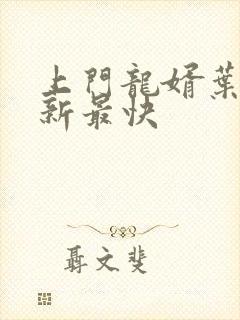 上門龍婿葉
新最快
聶文斐